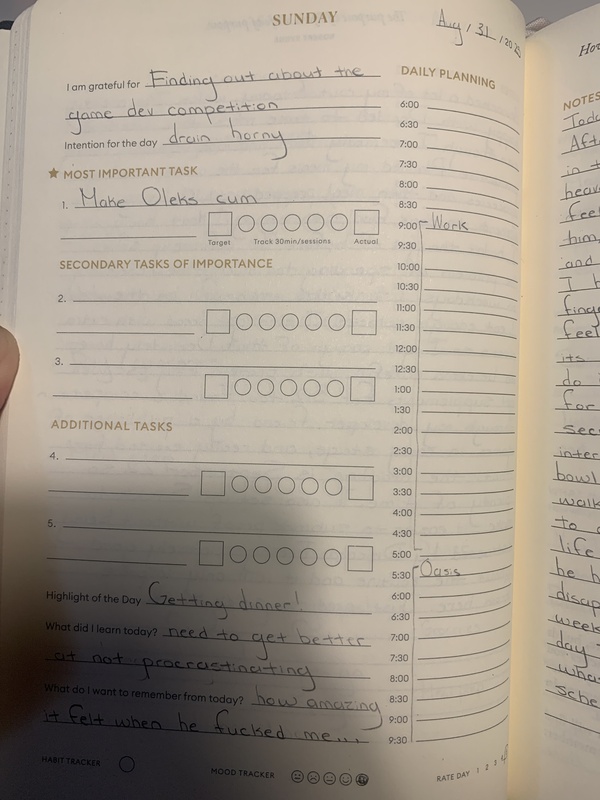 SUNDAY
Aug / 31 / 20
I am grateful for Finding out about the
game dev competition
Intention for the day drain horny
★ MOST IMPORTANT TASK
1. Make Oleks cum
Target Track 30min/sessions Actual
SECONDARY TASKS OF IMPORTANCE
2.
3.
ADDITIONAL TASKS
4.
5.
Highlight of the Day Getting dinner!
What did I learn today? need to get better
at not procrastinating
What do I want to remember from today? how amazing
it felt when he fucked me...
HABIT TRACKER
MOOD TRACKER
DAILY PLANNING
6:00
6:30
7:00
7:30
8:00
8:30
9:00 Work
9:30
10:00
10:30
11:00
11:30
12:00
12:30
1:00
1:30
2:00
2:30
3:00
3:30
4:00
4:30
5:00
5:30 Oasis
6:00
6:30
7:00
7:30
8:00
8:30
9:00
9:30
RATE DAY 1 2 3 4
NOTES
in
feel
him,
and
I
feel
its
do
for
bowl
to
life
he
week
day